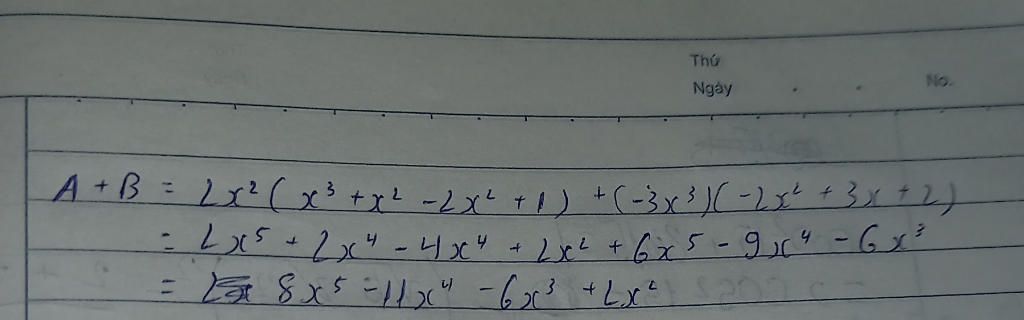 Thứ
Ngày . . No.
A + B = 2x² ( x³ + x² - 2x² + 1 ) + (-3x³)(-2x² + 3x + 2)
= 2x⁵ + 2x⁴ - 4x⁴ + 2x² + 6x⁵ - 9x⁴ - 6x³
= 8x⁵ - 11x⁴ - 6x³ + 2x²